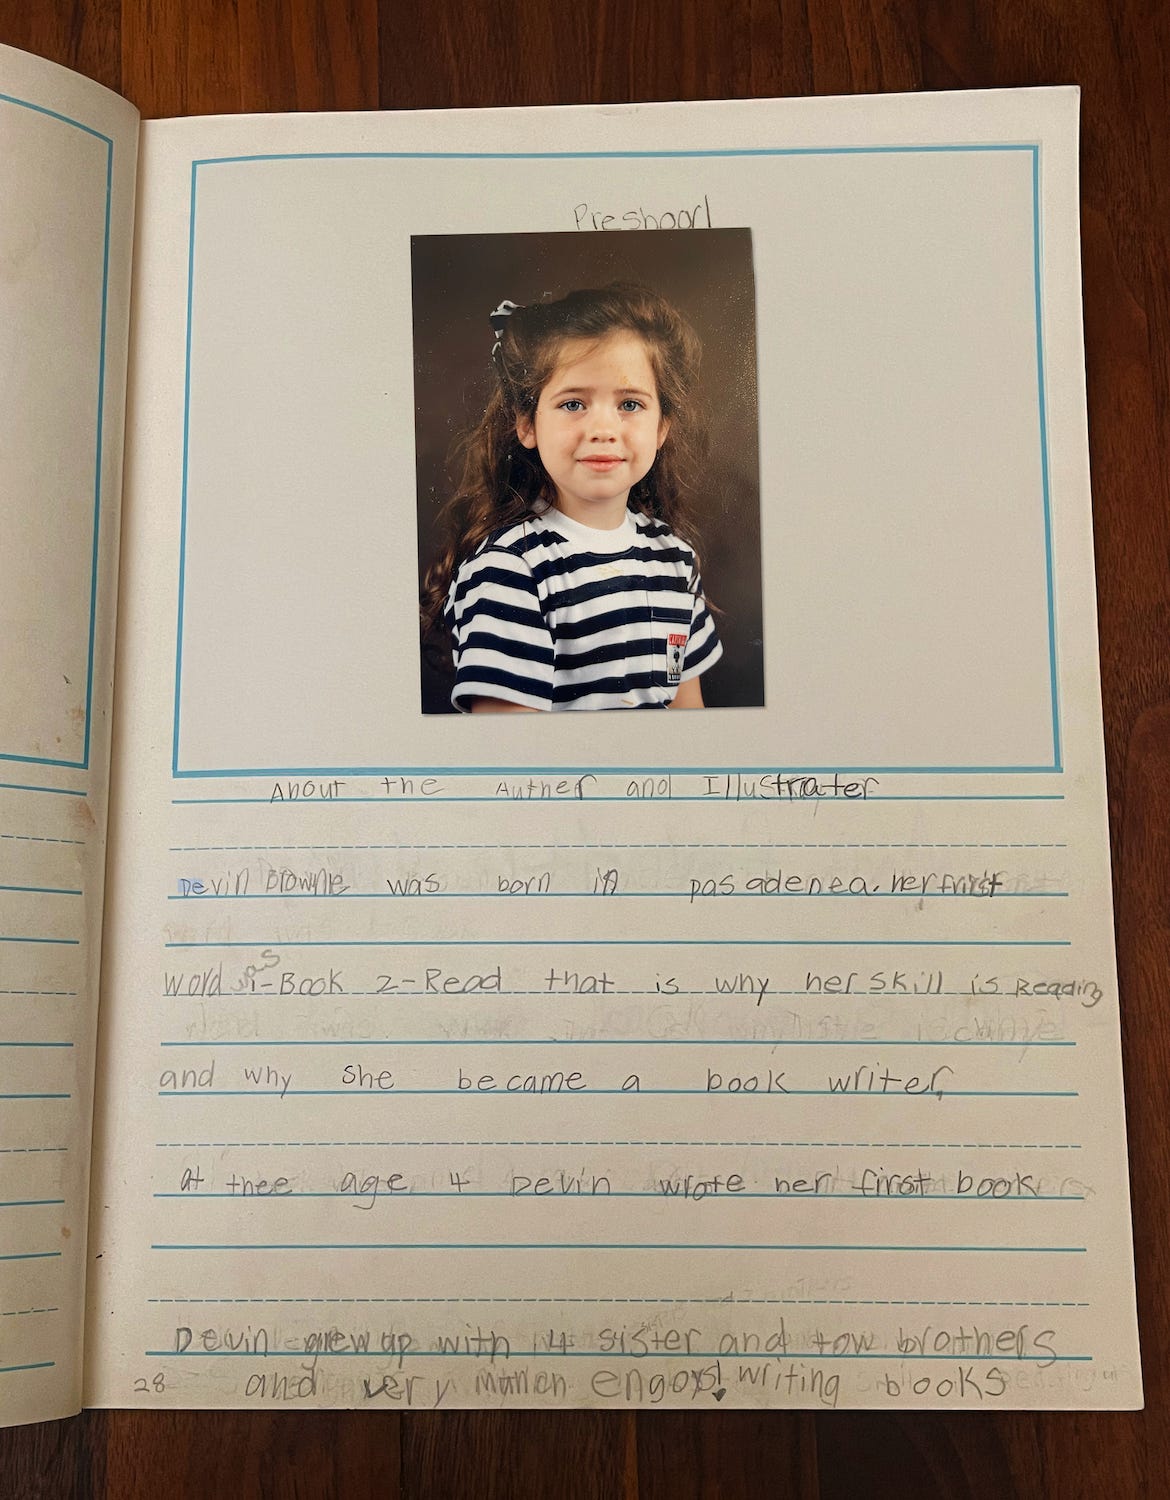 Preshoorl
About the Auther and Illustrater
Devin Browne was born in pasadenea. her frist
word was 1-Book 2-Read that is why her skill is Reading
and why she became a book writer,
at thee age 4 Devin wrote her first book
Devin grew up with 4 sister and tow brothers
28 and very engoys! writing books